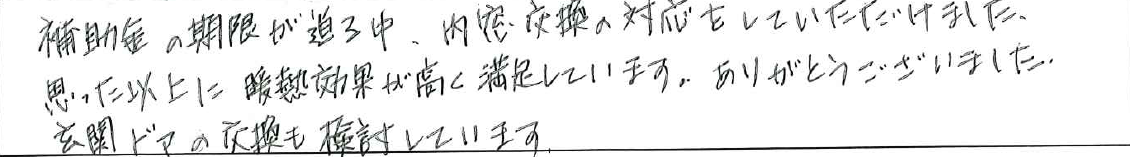 補助金の期限が迫る中、内窓交換の対応をしていただけました。
思った以上に暖熱効果が高く満足しています。ありがとうございました。
玄関ドアの交換も検討しています。